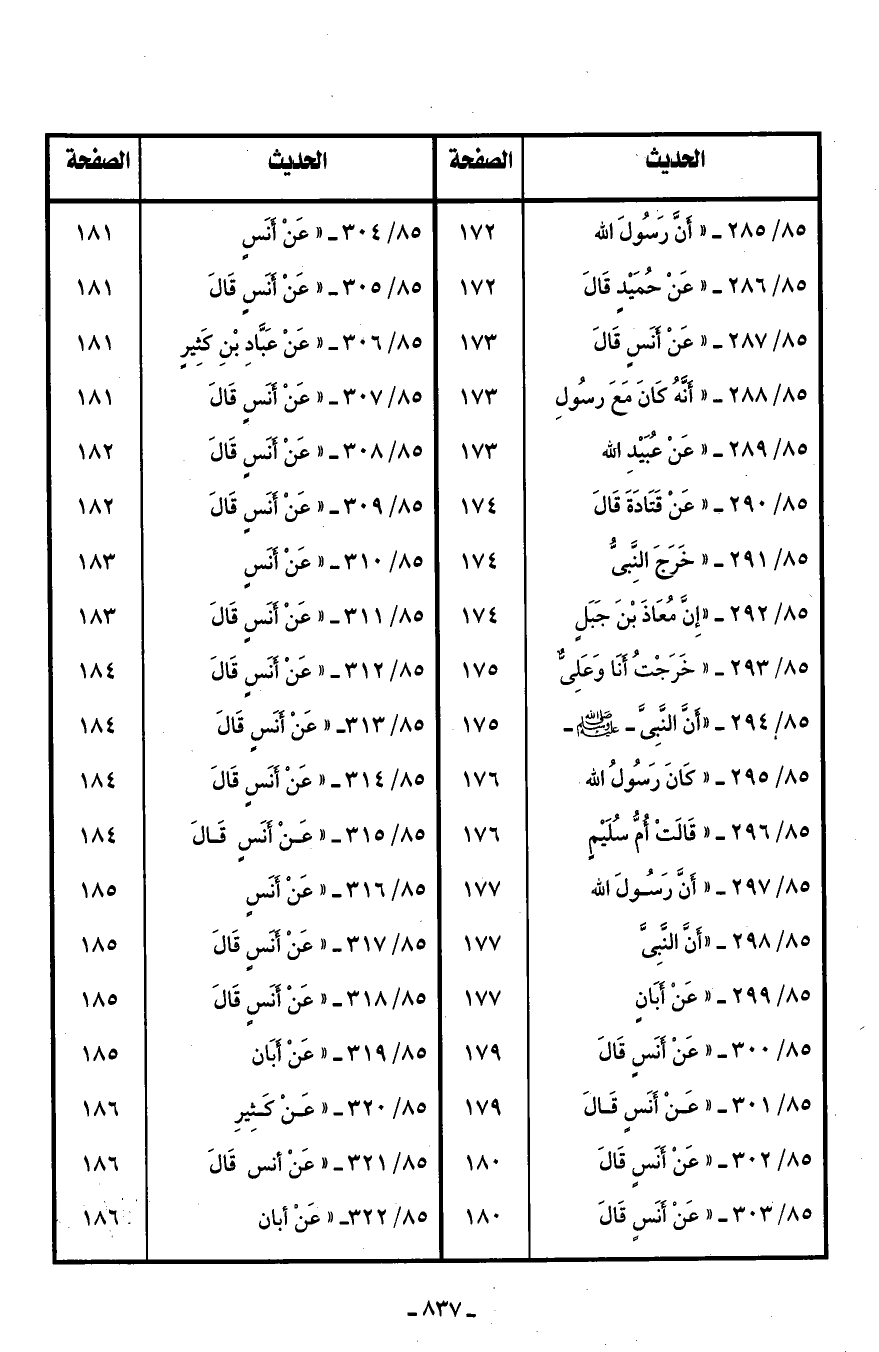 الحديث الصفحة الحديث الصفحة
٢٨٥/٨٥ ـ « أَنَّ رَسُولَ الله ١٧٢ ٣٠٤/٨٥ ـ « عَنْ أَنَسٍ ١٨١
٢٨٦/٨٥ ـ « عَنْ حُمَيْدٍ قَالَ ١٧٢ ٣٠٥/٨٥ ـ « عَنْ أَنَسٍ قَالَ ١٨١
٢٨٧/٨٥ ـ « عَنْ أَنَسٍ قَالَ ١٧٣ ٣٠٦/٨٥ ـ « عَنْ عَبَّادِ بْنِ كَثِيرٍ ١٨١
٢٨٨/٨٥ ـ « أَنَّهُ كَانَ مَعَ رسُولِ ١٧٣ ٣٠٧/٨٥ ـ « عَنْ أَنَسٍ قَالَ ١٨١
٢٨٩/٨٥ ـ « عَنْ عُبَيْدِ الله ١٧٣ ٣٠٨/٨٥ ـ « عَنْ أَنَسٍ قَالَ ١٨٢
٢٩٠/٨٥ ـ « عَنْ قَتَادَةَ قَالَ ١٧٤ ٣٠٩/٨٥ ـ « عَنْ أَنَسٍ قَالَ ١٨٢
٢٩١/٨٥ ـ « خَرَجَ النَّبِىُّ ١٧٤ ٣١٠/٨٥ ـ « عَنْ أَنَسٍ ١٨٣
٢٩٢/٨٥ ـ «إِنَّ مُعَاذَ بْنَ جَبَلٍ ١٧٤ ٣١١/٨٥ ـ « عَنْ أَنَسٍ قَالَ ١٨٣
٢٩٣/٨٥ ـ « خَرَجْتُ أَنَا وَعَلِىٌّ ١٧٥ ٣١٢/٨٥ ـ « عَنْ أَنَسٍ قَالَ ١٨٤
٢٩٤/٨٥ ـ «أَنَّ النَّبِىَّ ـ ﷺ ـ ١٧٥ ٣١٣/٨٥ـ « عَنْ أَنَسٍ قَالَ ١٨٤
٢٩٥/٨٥ ـ « كَانَ رَسُولُ الله ١٧٦ ٣١٤/٨٥ ـ « عَنْ أَنَسٍ قَالَ ١٨٤
٢٩٦/٨٥ ـ « قَالَتْ أُمُّ سُلَيْمٍ ١٧٦ ٣١٥/٨٥ ـ « عَـنْ أَنَسٍ قَـالَ ١٨٤
٢٩٧/٨٥ ـ « أَنَّ رَسُـولَ الله ١٧٧ ٣١٦/٨٥ ـ « عَنْ أَنَسٍ ١٨٥
٢٩٨/٨٥ ـ «أَنَّ النَّبِىَّ ١٧٧ ٣١٧/٨٥ ـ « عَنْ أَنَسٍ قَالَ ١٨٥
٢٩٩/٨٥ ـ « عَنْ أَبَانٍ ١٧٧ ٣١٨/٨٥ ـ « عَنْ أَنَسٍ قَالَ ١٨٥
٣٠٠/٨٥ ـ « عَنْ أَنَسٍ قَالَ ١٧٩ ٣١٩/٨٥ ـ « عَنْ أَبَان ١٨٥
٣٠١/٨٥ ـ « عَـنْ أَنَسٍ قَـالَ ١٧٩ ٣٢٠/٨٥ ـ « عَـنْ كَـثِيرٍ ١٨٦
٣٠٢/٨٥ ـ « عَنْ أَنَسٍ قَالَ ١٨٠ ٣٢١/٨٥ ـ « عَنْ أنس قَالَ ١٨٦
٣٠٣/٨٥ ـ « عَنْ أَنَسٍ قَالَ ١٨٠ ٣٢٢/٨٥ـ « عَنْ أبان ١٨٦
ـ ٨٣٧ ـ